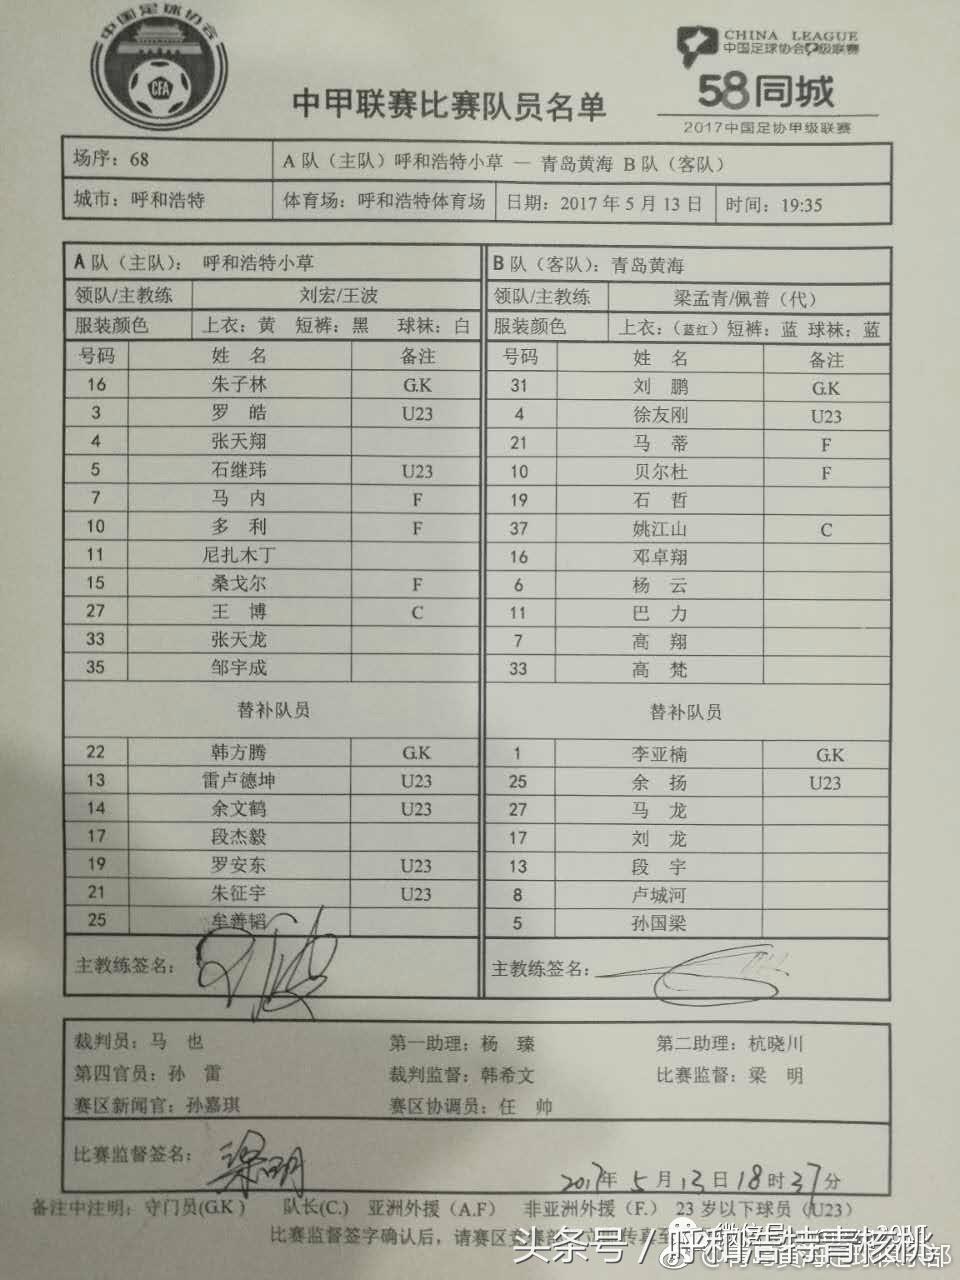 中国足球协会
CFA
CHINA LEAGUE
中国足球协会甲级联赛
58同城
2017中国足协甲级联赛
中甲联赛比赛队员名单
场序：68 A 队（主队）呼和浩特小草 — 青岛黄海 B 队（客队）
城市：呼和浩特 体育场：呼和浩特体育场 日期：2017 年 5 月 13 日 时间：19:35
A 队（主队）： 呼和浩特小草 B 队（客队）：青岛黄海
领队/主教练 刘宏/王波 领队/主教练 梁孟青/佩普（代）
服装颜色 上衣：黄 短裤：黑 球袜：白 服装颜色 上衣：（蓝红）短裤：蓝 球袜：蓝
号码 姓 名 备注 号码 姓 名 备注
16 朱子林 G.K 31 刘 鹏 G.K
3 罗 皓 U23 4 徐友刚 U23
4 张天翔 21 马 蒂 F
5 石继玮 U23 10 贝尔杜 F
7 马 内 F 19 石 哲
10 多 利 F 37 姚江山 C
11 尼扎木丁 16 邓卓翔
15 桑戈尔 F 6 杨 云
27 王 博 C 11 巴 力
33 张天龙 7 高 翔
35 邹宇成 33 高 梵
替补队员 替补队员
22 韩方腾 G.K 1 李亚楠 G.K
13 雷卢德坤 U23 25 余 扬 U23
14 余文鹤 U23 27 马 龙
17 段杰毅 17 刘 龙
19 罗安东 U23 13 段 宇
21 朱征宇 U23 8 卢城河
25 牟善韬 5 孙国梁
主教练签名： 主教练签名：
裁判员：马 也 第一助理：杨 臻 第二助理：杭晓川
第四官员：孙 雷 裁判监督：韩希文 比赛监督：梁 明
赛区新闻官：孙嘉琪 赛区协调员：任 帅
比赛监督签名： 梁明 2017年 5 月 13 日 18 时 37 分
备注中注明：守门员(G.K ) 队长(C.) 亚洲外援（A.F） 非亚洲外援（F.） 23 岁以下球员（U23）
比赛监督签字确认后，请赛区
头条号 / 呼和浩特青核桃